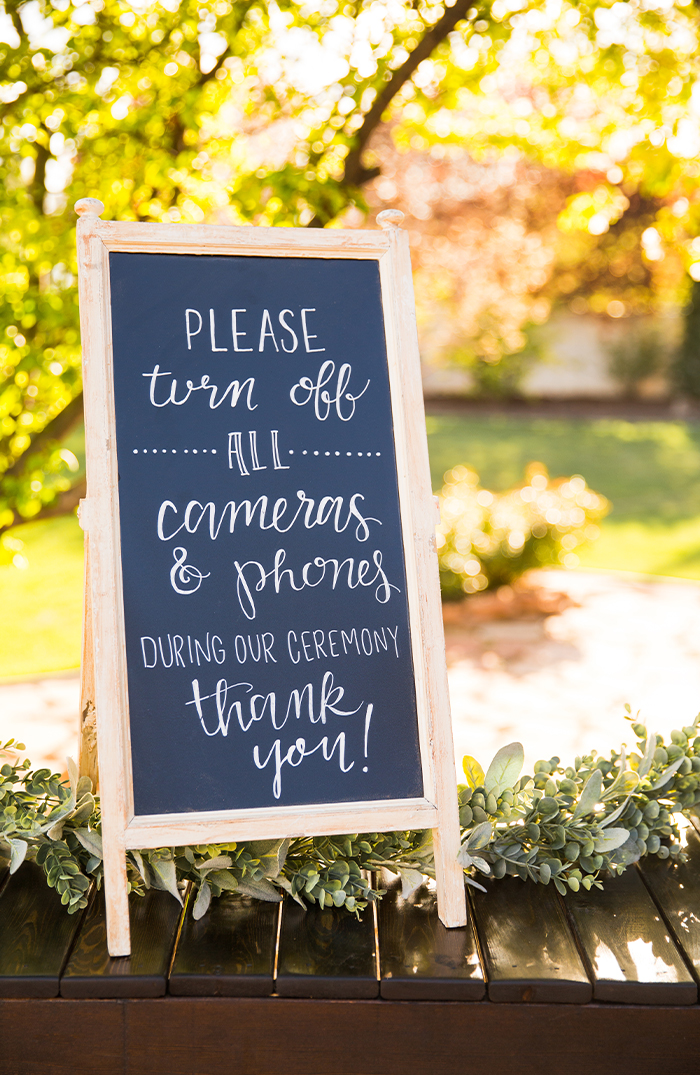 PLEASE
turn off
ALL
cameras
& phones
DURING OUR CEREMONY
thank
you!